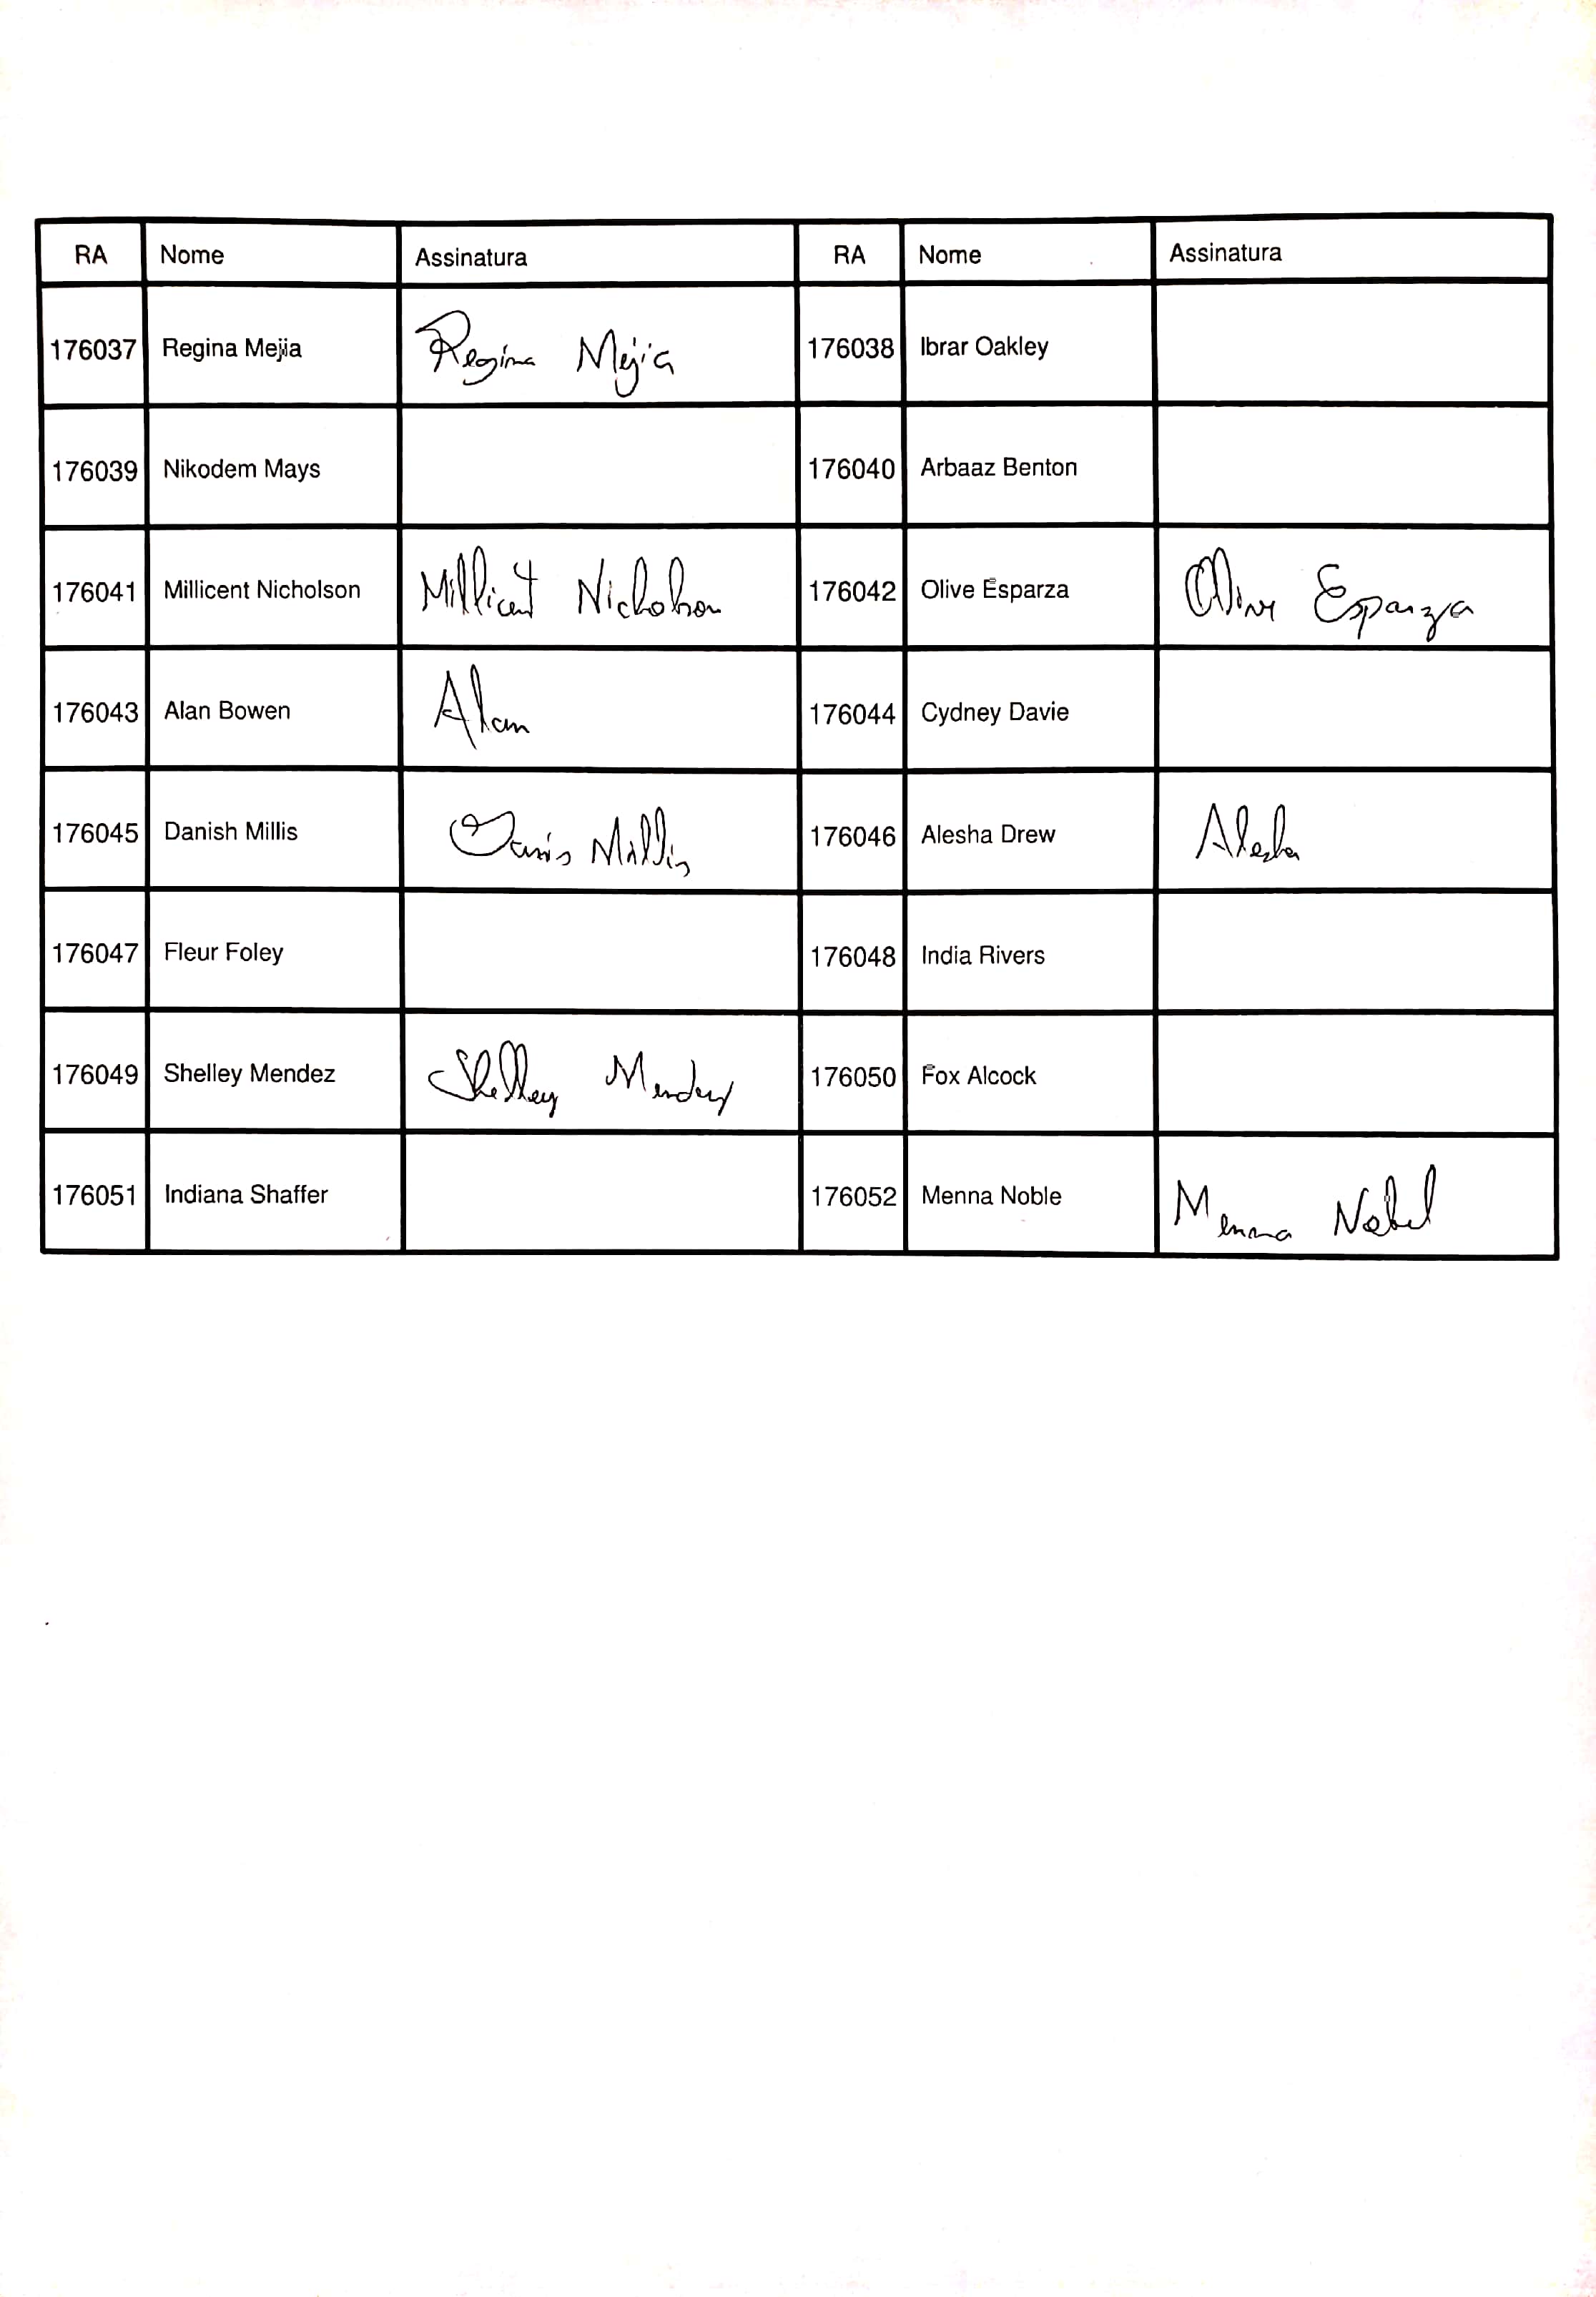 RA Nome Assinatura RA Nome Assinatura
176037 Regina Mejia Regina Mejia 176038 Ibrar Oakley
176039 Nikodem Mays 176040 Arbaaz Benton
176041 Millicent Nicholson Millicent Nicholson 176042 Olive Esparza Olive Esparza
176043 Alan Bowen Alan 176044 Cydney Davie
176045 Danish Millis Danis Millis 176046 Alesha Drew Alesha
176047 Fleur Foley 176048 India Rivers
176049 Shelley Mendez Shelley Mendez 176050 Fox Alcock
176051 Indiana Shaffer 176052 Menna Noble Menna Nobel